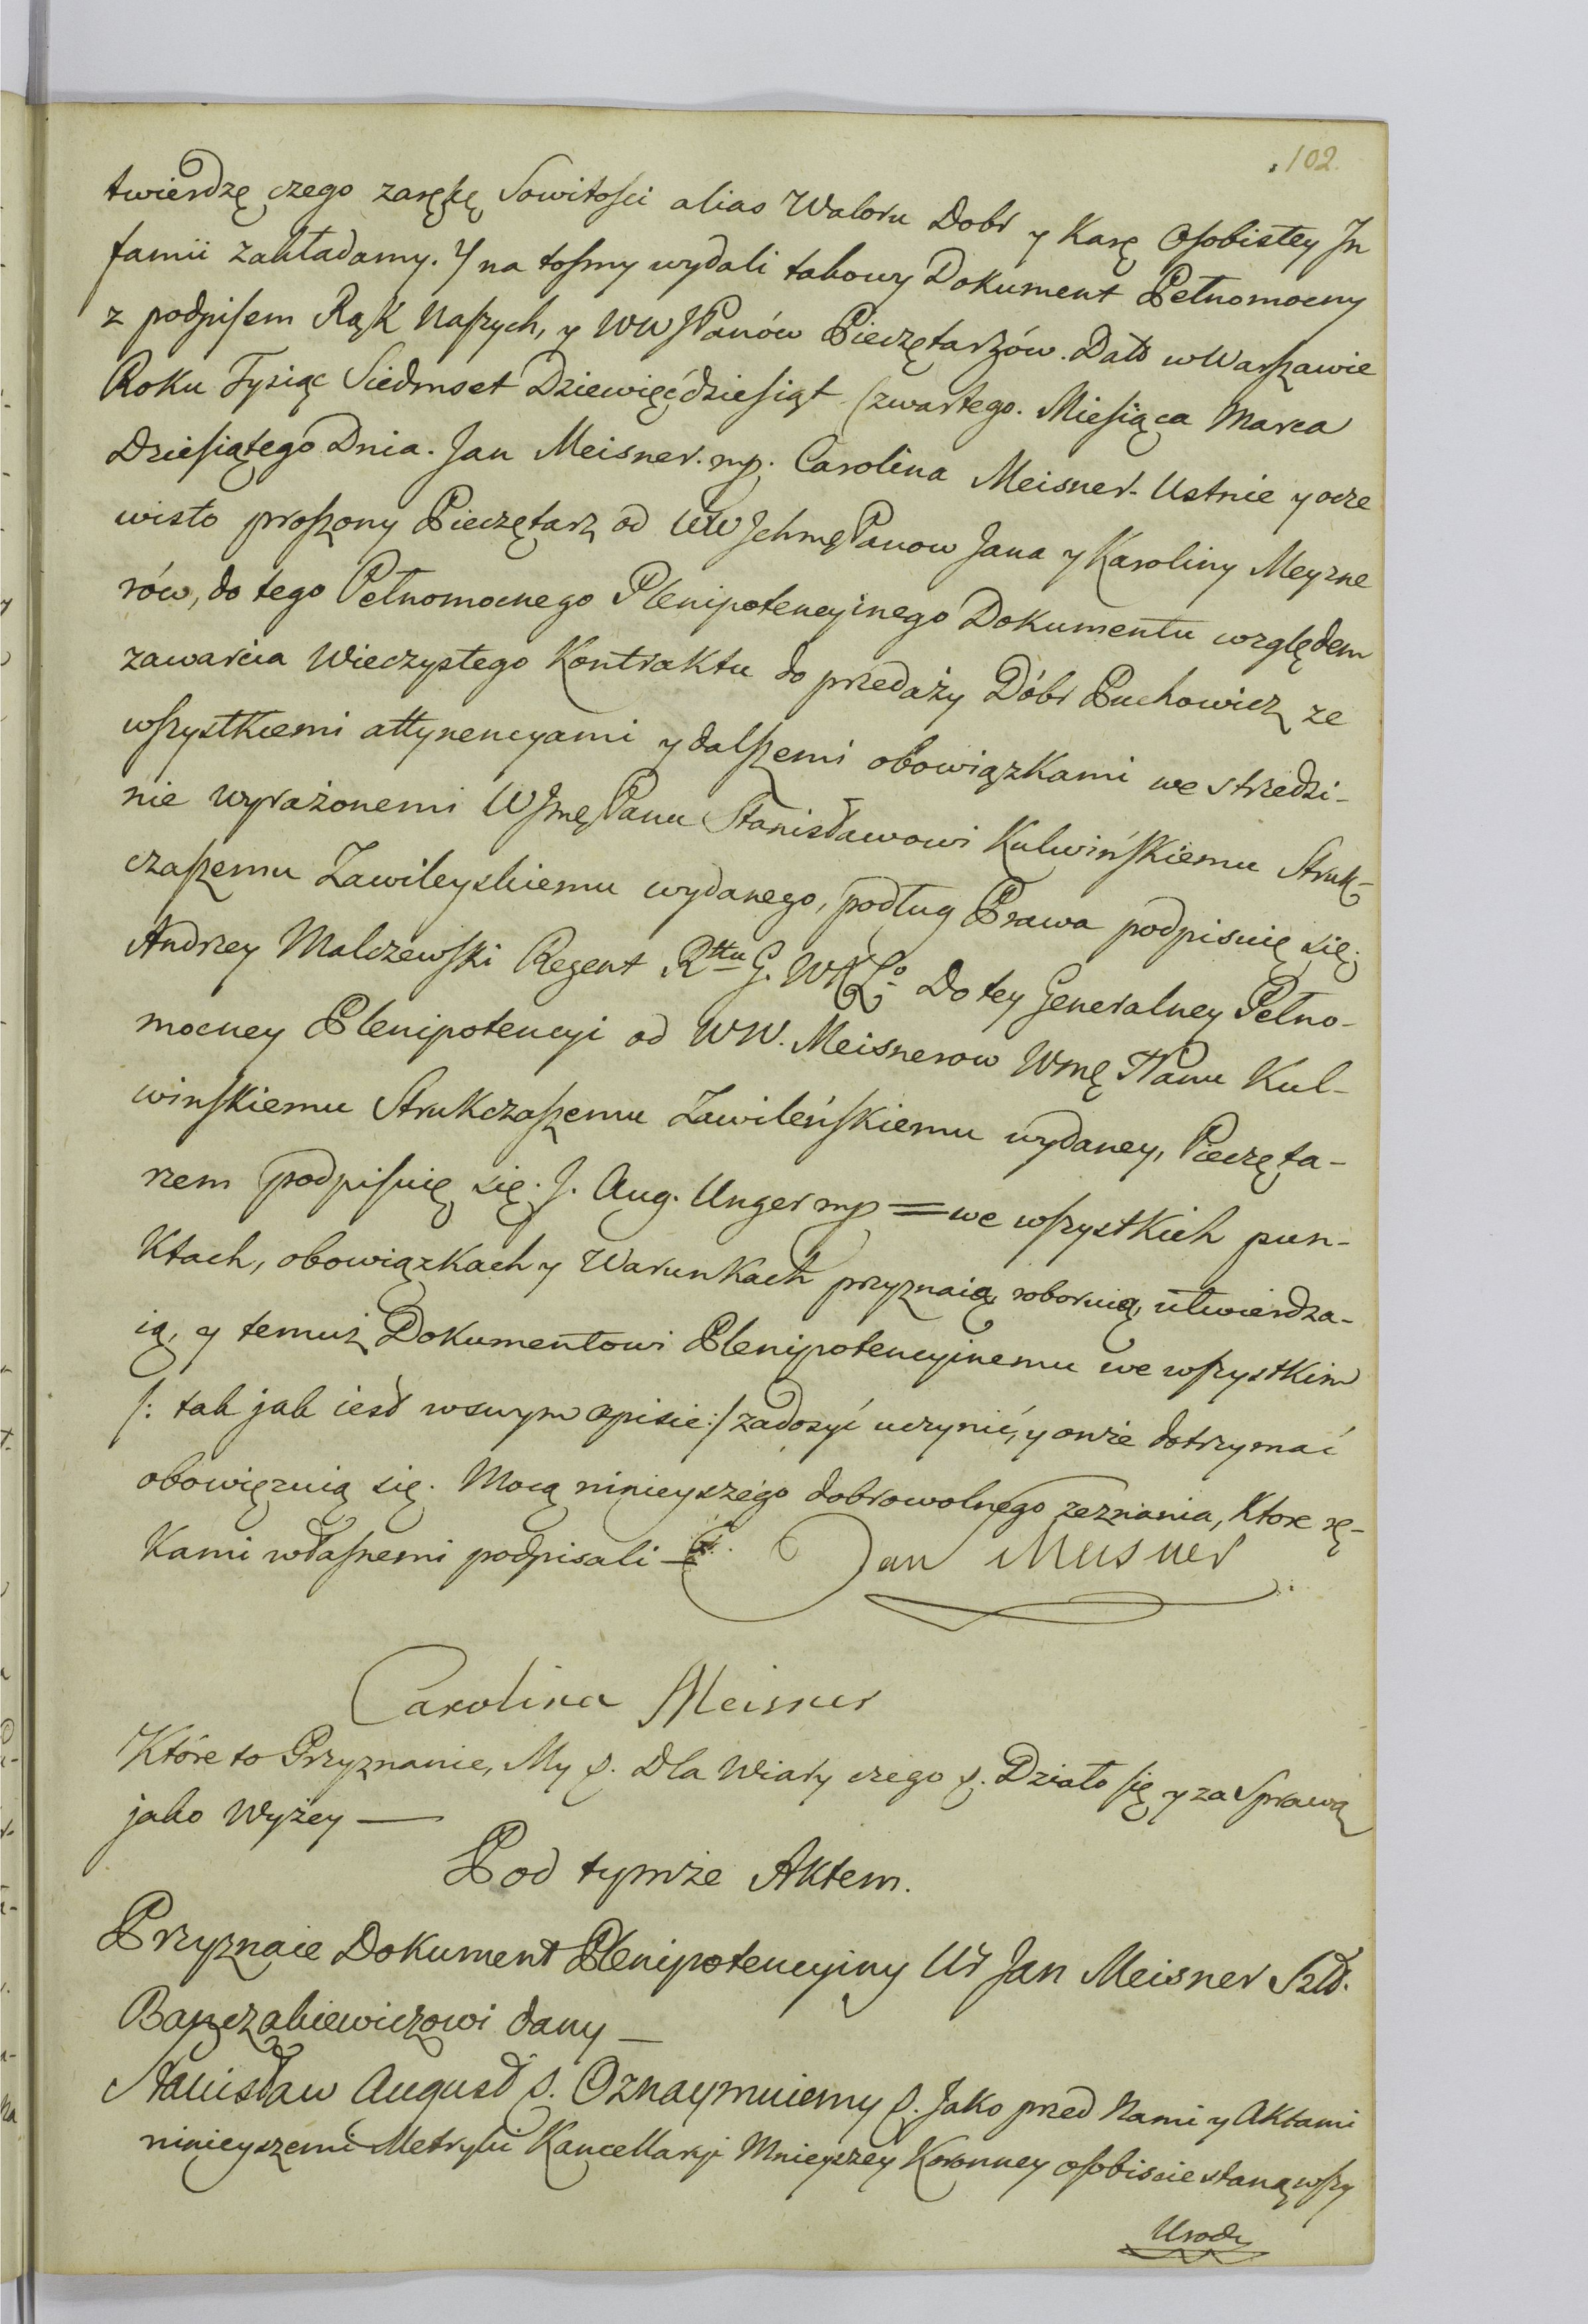 102.
twierdzę czego zarękę Sowitosci alias Waloru Dobr y Karę Osobistey In
famii zakładamy. Y na tosmy wydali takowy Dokument Pełnomocny
z podpisem Rąk Naszych, y WWJPanów Pieczętarzów. Dato w Warszawie
Roku Tysiąc Siedmset Dziewięćdziesiąt Czwartego. Miesiąca Marca
Dziesiątego Dnia. Jan Meisner. mp. Carolina Meisner. Ustnie y ocze
wisto proszony Pieczętarz od WWJchmę Panow Jana y Karoliny Meyzne
rów, do tego Pełnomocnego Plenipotencyinego Dokumentu względem
zawarcia Wieczystego Kontraktu do przedaży Dóbr Puchowicz ze
wszystkiemi attynencyami y dalszemi obowiązkami we strzedzi-
nie wyrażonemi WJmę Panu Stanisławowi Kulwińskiemu Struk-
czaszemu Zawileyskiemu wydanego, podług Prawa podpisuię się.
Andrzey Malczewski Regent Rttu G. WXLo Do tey Generalney Pełno-
mocney Plenipotencyi od WW. Meisnerow Wmę Panu Kul-
winskiemu Strukczaszemu Zawileńskiemu wydaney, Pieczęta-
rzem podpisuię się. J. Aug. Unger mp = we wszystkich pun-
ktach, obowiązkach y Warunkach przyznaią, roboruią, utwierdza-
ią, y temuż Dokumentowi Plenipotencyinemu we wszystkim
/: tak jak iest w swym opisie :/ zadosyć uczynić, y onże dotrzymać
obowięzuią się. Mocą ninieyszego dobrowolnego zeznania, Ktore rę-
kami własnemi podpisali
Jan Meisner
Carolina Meisner
Które to Przyznanie, My p. Dla Wiary czego p. Działo się y za Sprawą
jako Wyżey —
Pod tymże Aktem.
Przyznaie Dokument Plenipotencyiny Ur Jan Meisner Szld.
dany —
Stanisław August p. Oznaymuiemy p. Jako przed Nami y Aktami
ninieyszemi Metryki Kancellaryi Mnieyszey Koronney osobiscie stanąwszy
Urodz